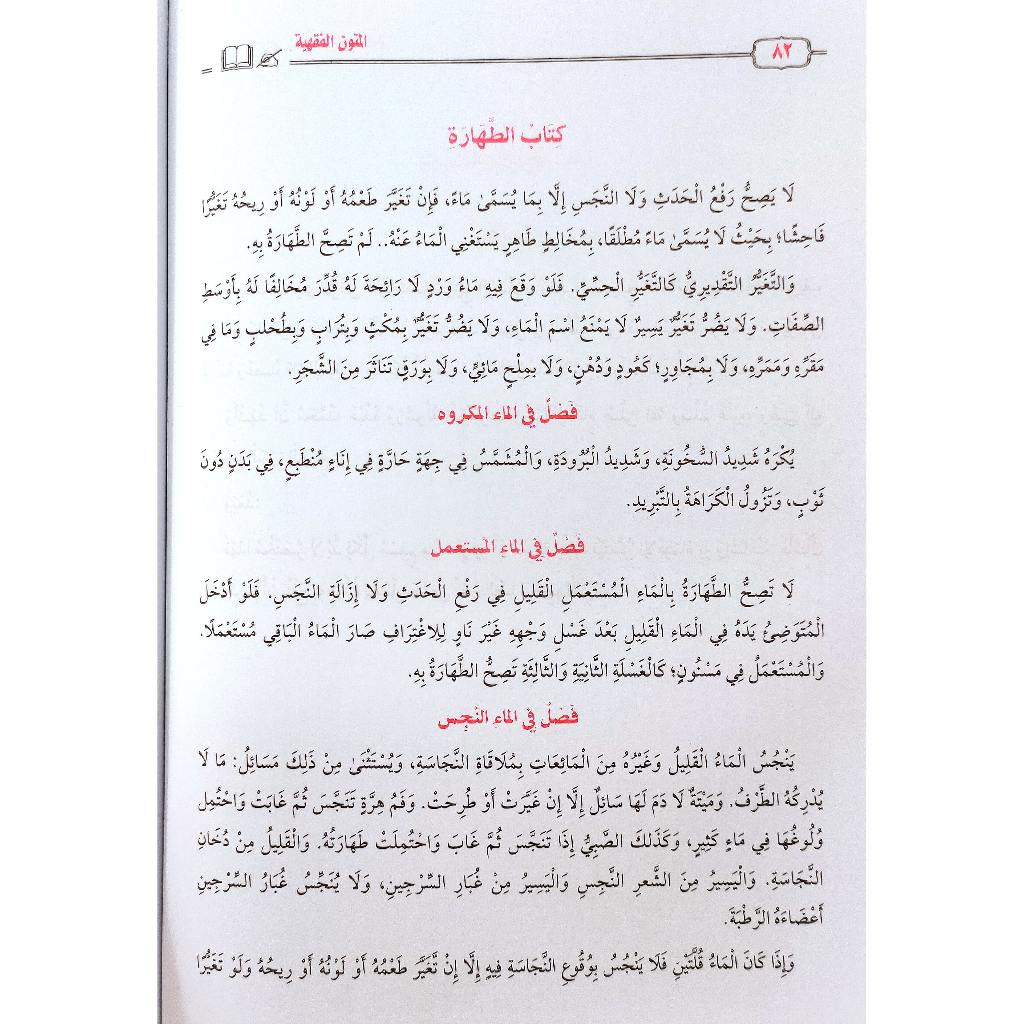 المتون الفقهية
٨٢
كِتَابُ الطَّهَارَةِ
لَا يَصِحُّ رَفْعُ الْحَدَثِ وَلَا النَّجَسِ إِلَّا بِمَا يُسَمَّىٰ مَاءً، فَإِنْ تَغَيَّرَ طَعْمُهُ أَوْ لَوْنُهُ أَوْ رِيحُهُ تَغَيُّرًا
فَاحِشًا؛ بِحَيْثُ لَا يُسَمَّىٰ مَاءً مُطْلَقًا، بِمُخَالِطٍ طَاهِرٍ يَسْتَغْنِي الْمَاءُ عَنْهُ.. لَمْ تَصِحَّ الطَّهَارَةُ بِهِ.
وَالتَّغَيُّرُ التَّقْدِيرِيُّ كَالتَّغَيُّرِ الْحِسِّيِّ. فَلَوْ وَقَعَ فِيهِ مَاءُ وَرْدٍ لَا رَائِحَةَ لَهُ قُدِّرَ مُخَالِفًا لَهُ بِأَوْسَطِ
الصِّفَاتِ. وَلَا يَضُرُّ تَغَيُّرٌ يَسِيرٌ لَا يَمْنَعُ اسْمَ الْمَاءِ، وَلَا يَضُرُّ تَغَيُّرٌ بِمُكْثٍ وَبِتُرَابٍ وَبِطُحْلبٍ وَمَا فِي
مَقَرِّهِ وَمَمَرِّهِ، وَلَا بِمُجَاوِرٍ؛ كَعُودٍ وَدُهْنٍ، وَلَا بِمِلْحٍ مَائِيٍّ، وَلَا بِوَرَقٍ تَنَاثَرَ مِنَ الشَّجَرِ.
فَصْلٌ فِي الماء المكروه
يُكْرَهُ شَدِيدُ السُّخُونَةِ، وَشَدِيدُ الْبُرُودَةِ، وَالْمُشَمَّسُ فِي جِهَةٍ حَارَّةٍ فِي إِنَاءٍ مُنْطَبِعٍ، فِي بَدَنٍ دُونَ
ثَوْبٍ، وَتَزُولُ الْكَرَاهَةُ بِالتَّبْرِيدِ.
فَصْلٌ فِي الماءِ المُستعمل
لَا تَصِحُّ الطَّهَارَةُ بِالْمَاءِ الْمُسْتَعْمَلِ الْقَلِيلِ فِي رَفْعِ الْحَدَثِ وَلَا إِزَالَةِ النَّجَسِ. فَلَوْ أَدْخَلَ
الْمُتَوَضِّئُ يَدَهُ فِي الْمَاءِ الْقَلِيلِ بَعْدَ غَسْلِ وَجْهِهِ غَيْرَ نَاوٍ لِلِاغْتِرَافِ صَارَ الْمَاءُ الْبَاقِي مُسْتَعْمَلًا.
وَالْمُسْتَعْمَلُ فِي مَسْنُونٍ؛ كَالْغَسْلَةِ الثَّانِيَةِ وَالثَّالِثَةِ تَصِحُّ الطَّهَارَةُ بِهِ.
فَصْلٌ فِي الماءِ النَّجِس
يَنْجُسُ الْمَاءُ الْقَلِيلُ وَغَيْرُهُ مِنَ الْمَائِعَاتِ بِمُلَاقَاةِ النَّجَاسَةِ، وَيُسْتَثْنَىٰ مِنْ ذَلِكَ مَسَائِلُ: مَا لَا
يُدْرِكُهُ الطَّرْفُ. وَمَيْتَةٌ لَا دَمَ لَهَا سَائِلٌ إِلَّا إِنْ غَيَّرَتْ أَوْ طُرِحَتْ. وَفَمُ هِرَّةٍ تَنَجَّسَ ثُمَّ غَابَتْ وَاحْتُمِلَ
وُلُوغُهَا فِي مَاءٍ كَثِيرٍ، وَكَذَلِكَ الصَّبِيُّ إِذَا تَنَجَّسَ ثُمَّ غَابَ وَاحْتُمِلَتْ طَهَارَتُهُ. وَالْقَلِيلُ مِنْ دُخَانِ
النَّجَاسَةِ. وَالْيَسِيرُ مِنَ الشَّعرِ النَّجِسِ وَالْيَسِيرُ مِنْ غُبَارِ السِّرْجِينِ، وَلَا يُنَجِّسُ غُبَارُ السِّرْجِينِ
أَعْضَاءَهُ الرَّطْبَةَ.
وَإِذَا كَانَ الْمَاءُ قُلَّتَيْنِ فَلَا يَنْجُسُ بِوُقُوعِ النَّجَاسَةِ فِيهِ إِلَّا إِنْ تَّغَيَّرَ طَعْمُهُ أَوْ لَوْنُهُ أَوْ رِيحُهُ وَلَوْ تَغَيُّرًا